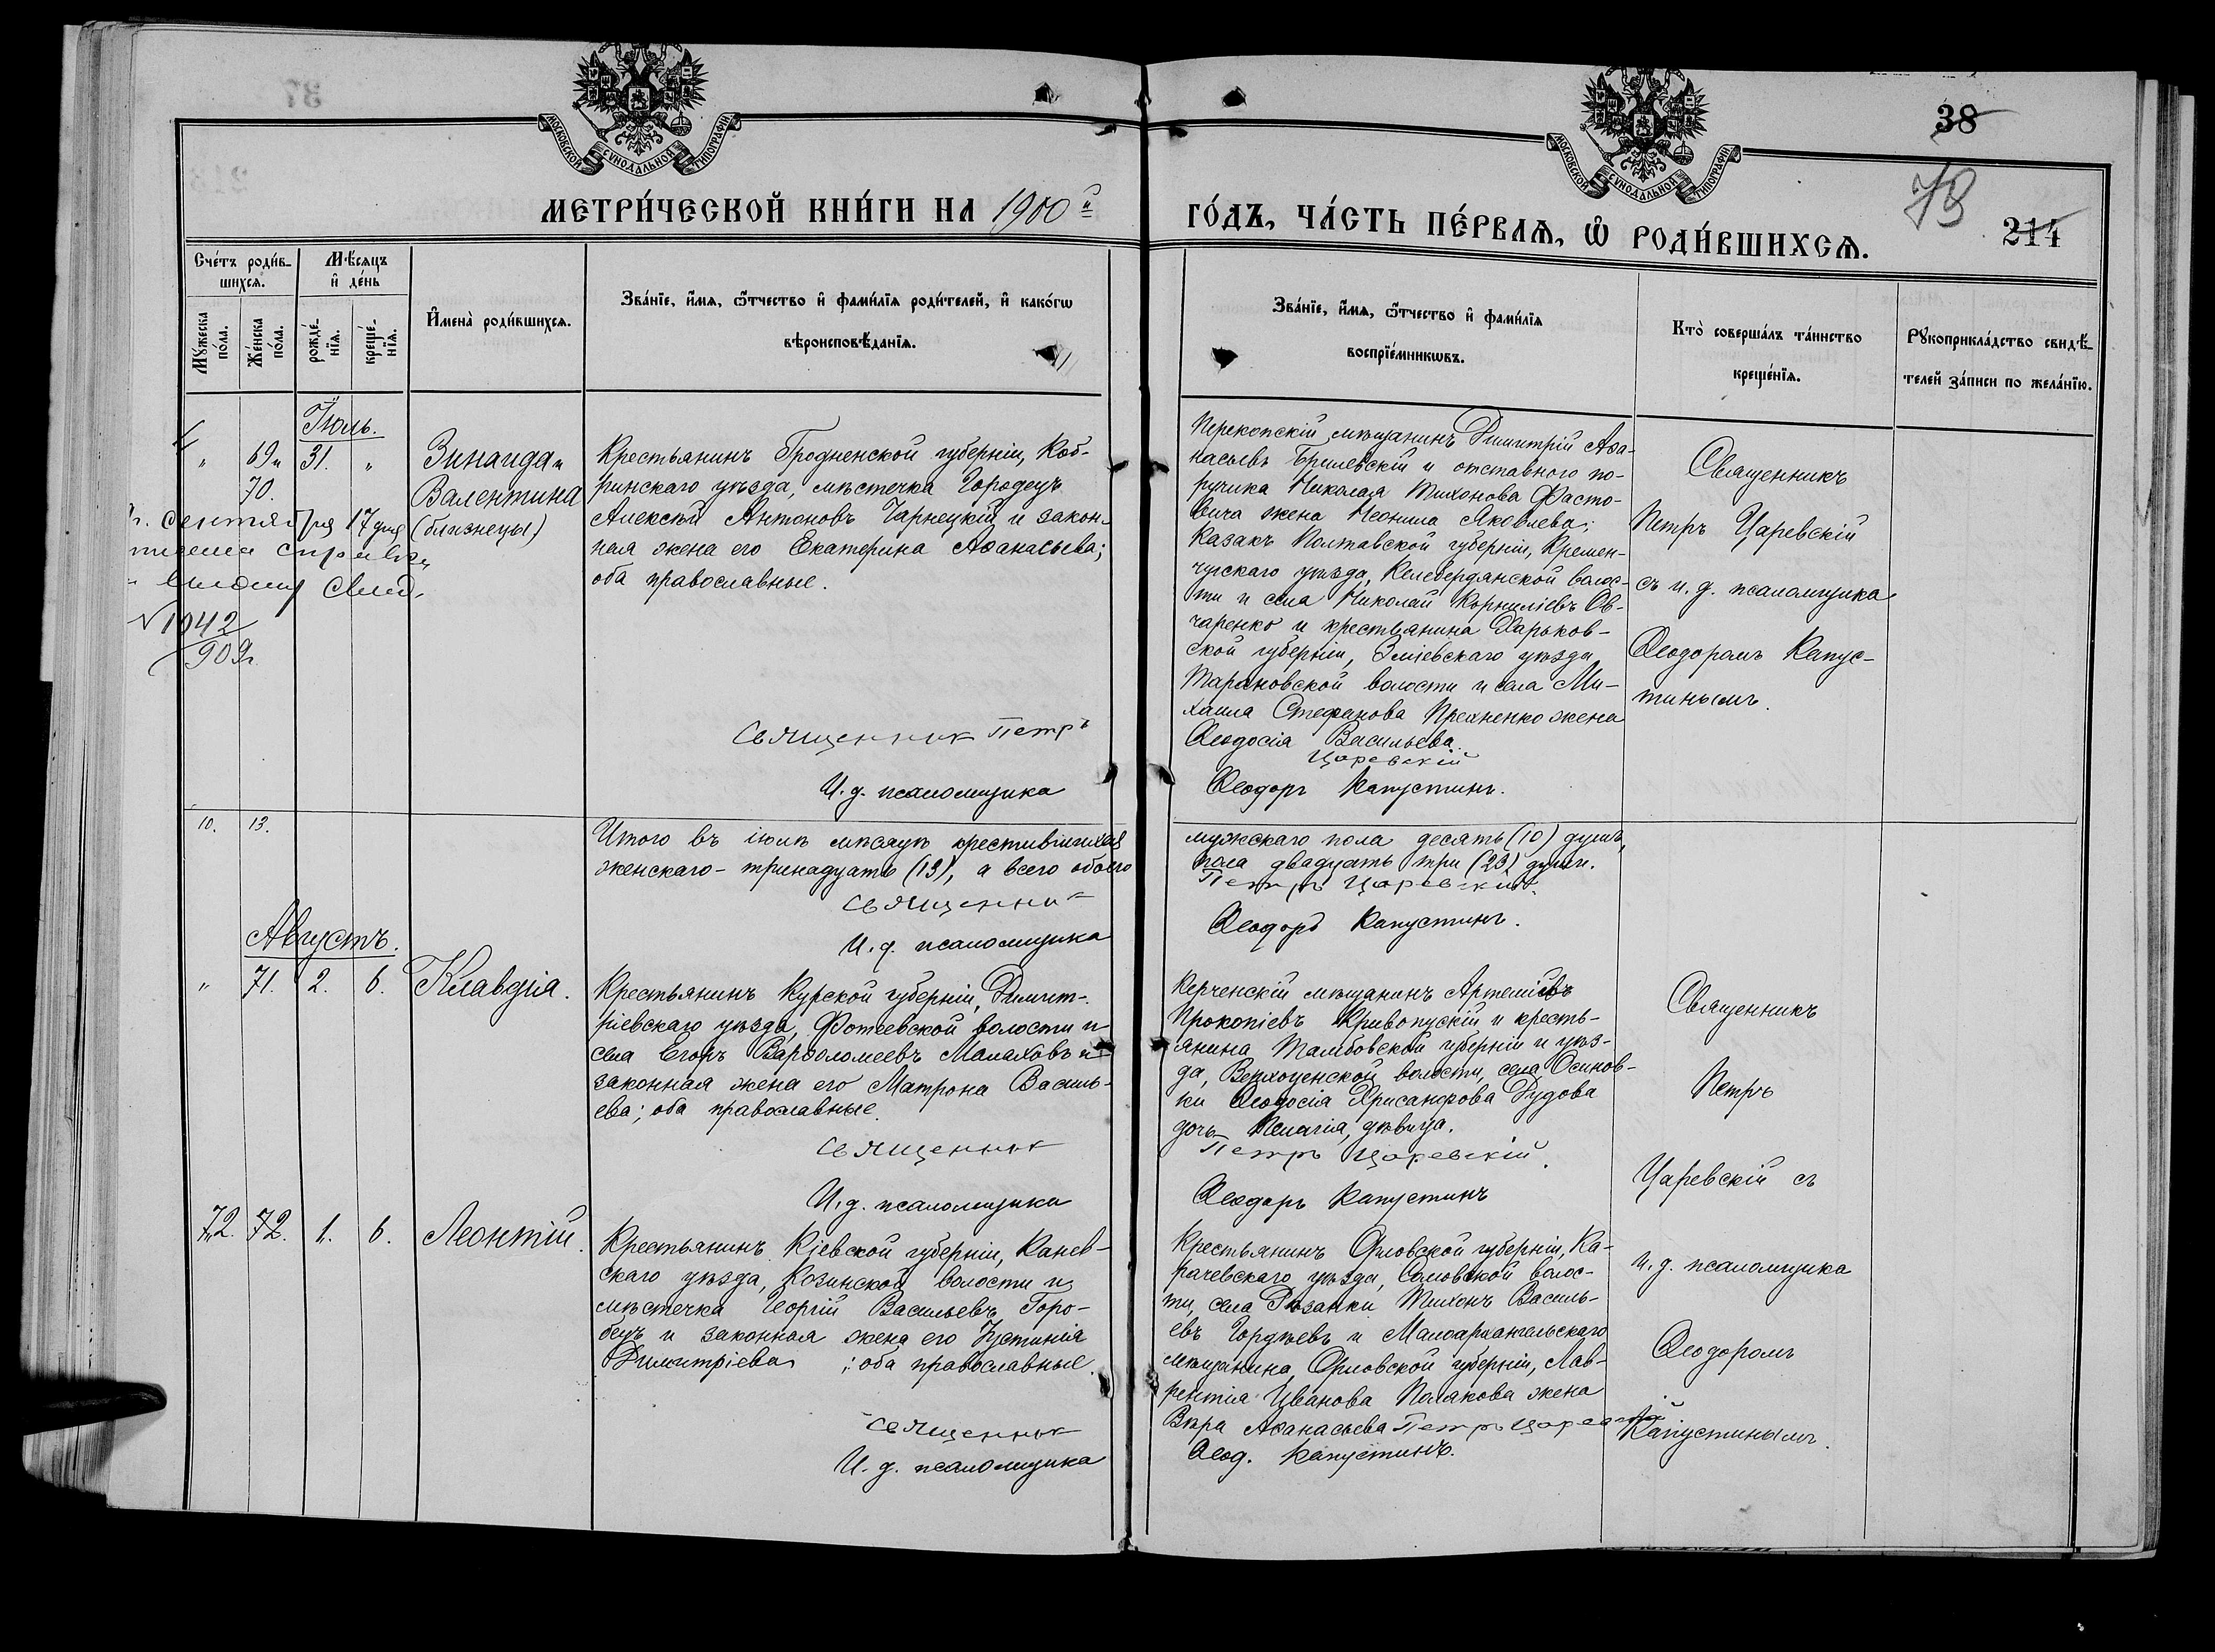 МОСКОВСКОЙ СѴНОДАЛЬНОЙ ТИПОГРАФІИ
МОСКОВСКОЙ СѴНОДАЛЬНОЙ ТИПОГРАФІИ
38
78
214
МЕТРИ́ЧЕСКОЙ КНИ́ГИ НА 1900й
ГО́ДЪ, ЧА́СТЬ ПЕ́РВАѦ, Ѡ҆ РОДИ́ВШИХСѦ.
Сче́тъ роди́в-
шихсѧ.
Мꙋ́жеска по́ла.
Же́нска по́ла.
Мѣ́сѧцъ
и҆ де́нь
рожде́-
нїѧ.
креще́-
нїѧ.
И҆мена̀ роди́вшихсѧ.
Зва́нїе, и҆́мѧ, ѻ҆́тчество и҆ фами́лїѧ роди́телей, и҆ како́гѡ
вѣроисповѣ́данїѧ.
Зва́нїе, и҆́мѧ, ѻ҆́тчество и҆ фами́лїѧ
воспрїе́мникѡвъ.
Кто̀ соверша́лъ та́инство
креще́нїѧ.
Рꙋкоприкла́дство свидѣ́-
телей за́писи по жела́нїю.
Іюль.
" 69 и 31. "
70.
Зинаида и
Валентина
(близнецы)
Сентября 17 дня
выдано свид.
№ 1042
909 г.
Крестьянинъ Гродненской губерніи, Коб-
ринскаго уѣзда, мѣстечка Городецъ
Алексѣй Антоновъ Чарнецкій и закон-
ная жена его Екатерина Аѳанасьева;
оба православные.
Священник Петръ
И. д. псаломщика
Перекопскій мѣщанинъ Димитрій Аѳа-
насьевъ Брилевскій и отставного по-
ручика Николая Тихонова Фасто-
вича жена Неонила Яковлева;
Казакъ Полтавской губерніи, Кремен-
чугскаго уѣзда, Келебердянской волос-
ти и села Николай Корниліевъ Ов-
чаренко и крестьянина Харьков-
ской губерніи, Зміевскаго уѣзда,
Тарановской волости и села Ми-
хаила Стефанова жена
Ѳеодосія Васильева.
Царевскій
Ѳеодоръ Капустинъ.
Священникъ
Петръ Царевскій
съ и. д. псаломщика
Ѳеодоромъ Капус-
тинымъ.
10. 13.
Итого въ іюлѣ мѣсяцѣ крестившихся
женскаго - тринадцать (13), а всего обоего
Священник
И. д. псаломщика
мужскаго пола десять (10) душъ,
пола двадцать три (23) души.
Петръ Царевскій.
Ѳеодоръ Капустинъ.
Августъ.
" 71. 2. 6.
Клавдія.
Крестьянинъ Курской губерніи, Димит-
ріевскаго уѣзда, Фотеевской волости и
села Егоръ Варѳоломеевъ Малаховъ и
законная жена его Матрона Василь-
ева; оба православные.
Священник
И. д. псаломщика
Керченскій мѣщанинъ Артемій
Прокопіевъ Кривопускій и кресть-
янина Тамбовской губерніи и уѣз-
да, Верхоценской волости, села Осинов-
ки Ѳеодосія Хрисанфова Дудова
дочь Пелагія, дѣвица.
Петръ Царевскій.
Ѳеодоръ Капустинъ
Священникъ
Петръ
Царевскій съ
и. д. псаломщика
Ѳеодоромъ
Капустинымъ.
72. 72. 1. 6.
Леонтій.
Крестьянинъ Кіевской губерніи, Канев-
скаго уѣзда, Козинской волости и
мѣстечка Георгій Васильевъ Горо-
бецъ и законная жена его Іустинія
Димитріева; оба православные.
Священник
И. д. псаломщика
Крестьянинъ Орловской губерніи, Ка-
рачевскаго уѣзда, волос-
ти, села Рѣзанки Тихонъ Василь-
евъ Гордѣевъ и Малоархангельскаго
мѣщанина, Орловской губерніи, Лав-
рентія Иванова Полякова жена
Вѣра Аѳанасьева Петръ Царевскій
Ѳеод. Капустинъ.